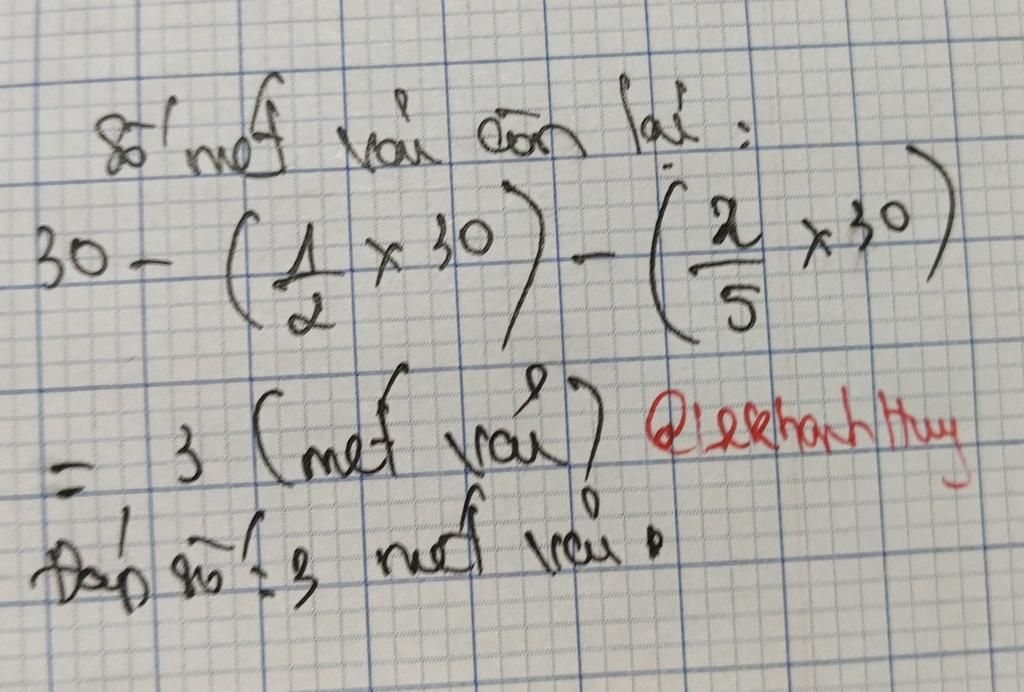 Số mét vải còn lại :
30 - ( 1/2 x 30 ) - ( 2/5 x 30 )
= 3 (mét vải) @lekhanhHuy
Đáp số : 3 mét vải .